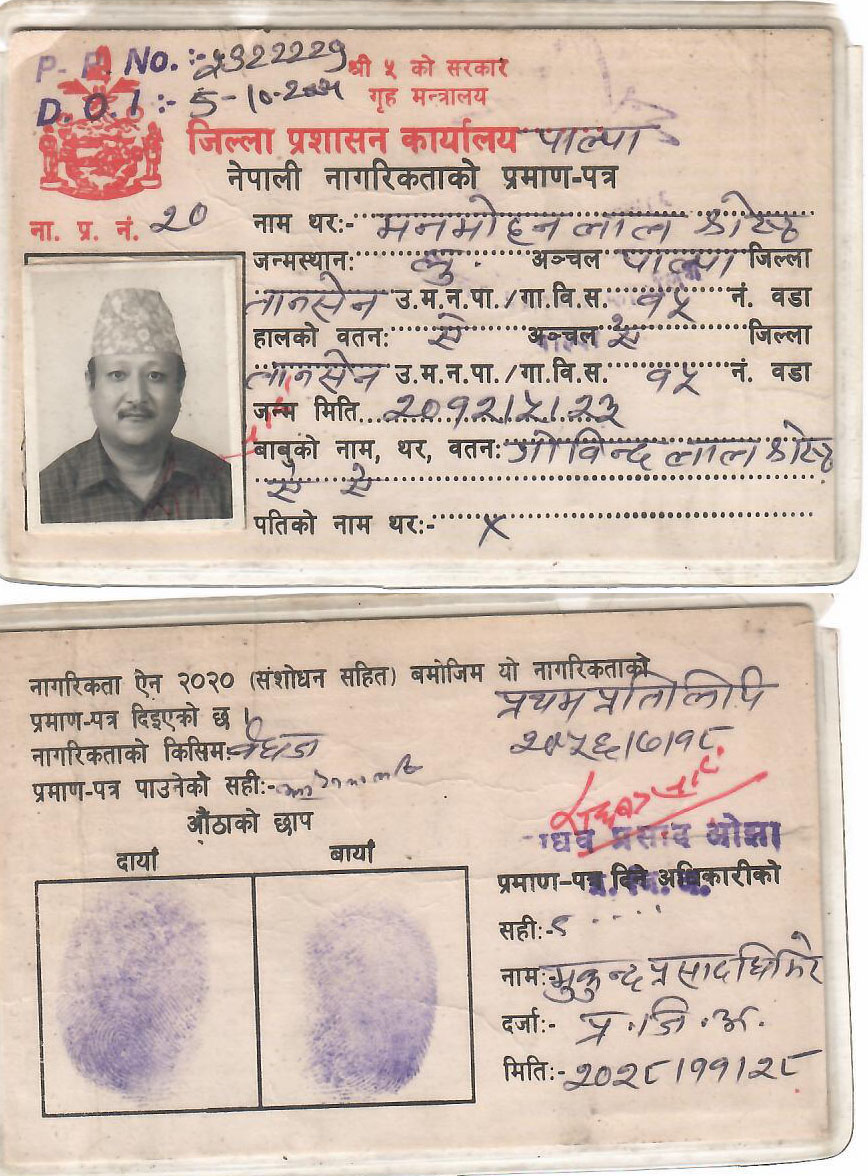 P. P. No. :- 2322229
D. O. I :- 5-10-2001
श्री ५ को सरकार
गृह मन्त्रालय
जिल्ला प्रशासन कार्यालय पाल्पा
नेपाली नागरिकताको प्रमाण-पत्र
ना. प्र. नं. २०
नाम थर:- मनमोहन लाल श्रेष्ठ
जन्मस्थान: लु. अञ्चल पाल्पा जिल्ला
तानसेन उ.म.न.पा./गा.वि.स. १५ नं. वडा
हालको वतन: ऐ अञ्चल ऐ जिल्ला
तानसेन उ.म.न.पा./गा.वि.स. १५ नं. वडा
जन्म मिति २०१२।५।२३
बाबुको नाम, थर, वतन: गोविन्द लाल श्रेष्ठ
ऐ ऐ
पतिको नाम थर:- X
नागरिकता ऐन २०२० (संशोधन सहित) बमोजिम यो नागरिकताको
प्रमाण-पत्र दिइएको छ ।
प्रथम प्रतिलिपि
२०५६।७।१८
नागरिकताको किसिम: वंशज
प्रमाण-पत्र पाउनेको सही:-
औंठाको छाप
दायाँ बायाँ
प्रसाद ओझा
प्रमाण-पत्र दिने अधिकारीको
सही:-
नाम:- मुकुन्द प्रसाद घिमिरे
दर्जा:- प्र.जि.अ.
मिति:- २०२८।११।२८